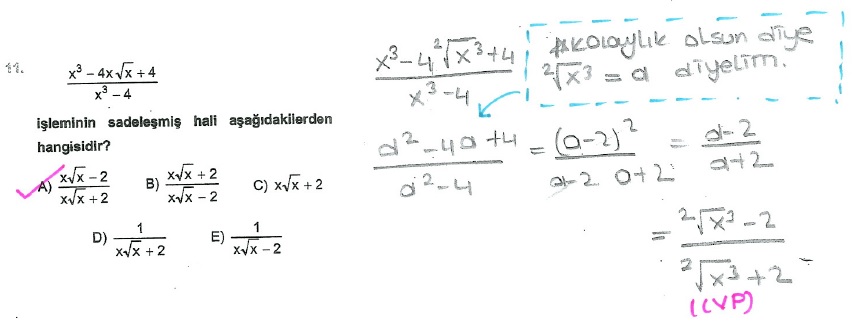 11.
x³ − 4x√x + 4
x³ − 4
işleminin sadeleşmiş hali aşağıdakilerden
hangisidir?
A) x√x − 2 / x√x + 2
B) x√x + 2 / x√x − 2
C) x√x + 2
D) 1 / x√x + 2
E) 1 / x√x − 2
x³ − 4 ²√x³ + 4
x³ − 4
**KOLAYLIK OLSUN DİYE
²√x³ = a diyelim.
a² − 4a + 4 / a² − 4 = (a − 2)² / a − 2 a + 2 = a − 2 / a + 2
= ²√x³ − 2 / ²√x³ + 2
(CVP)